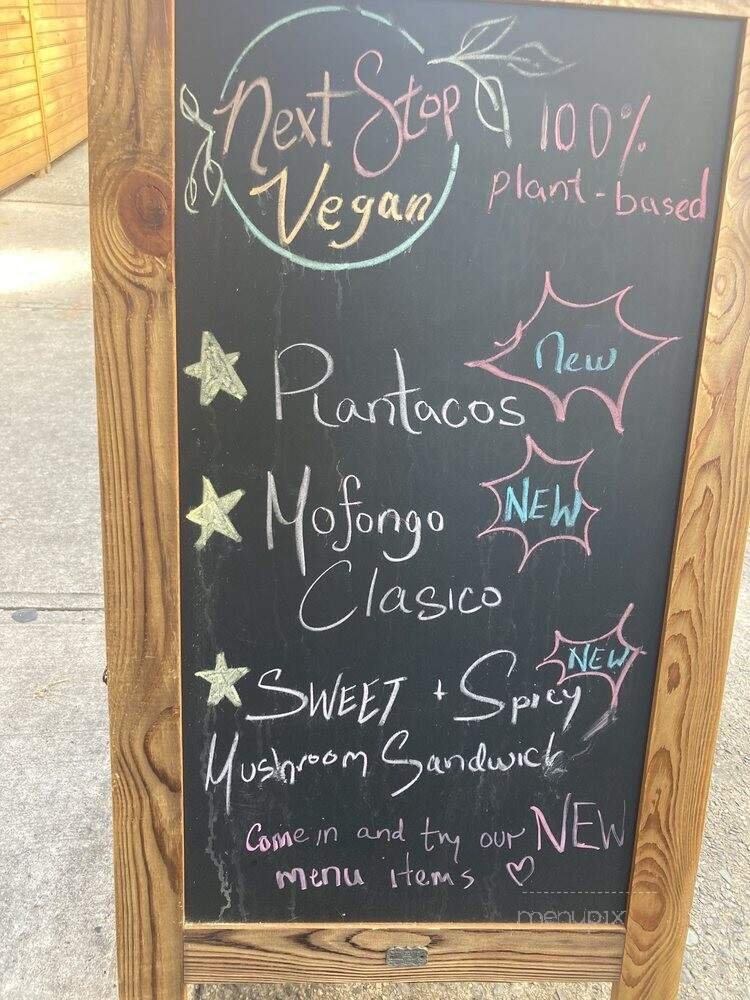 Next Stop
Vegan
100%
plant-based
Plantacos
new
Mofongo
NEW
Clasico
NEW
SWEET + Spicy
Mushroom Sandwich
Come in and try our NEW
menu items ♡
menupix